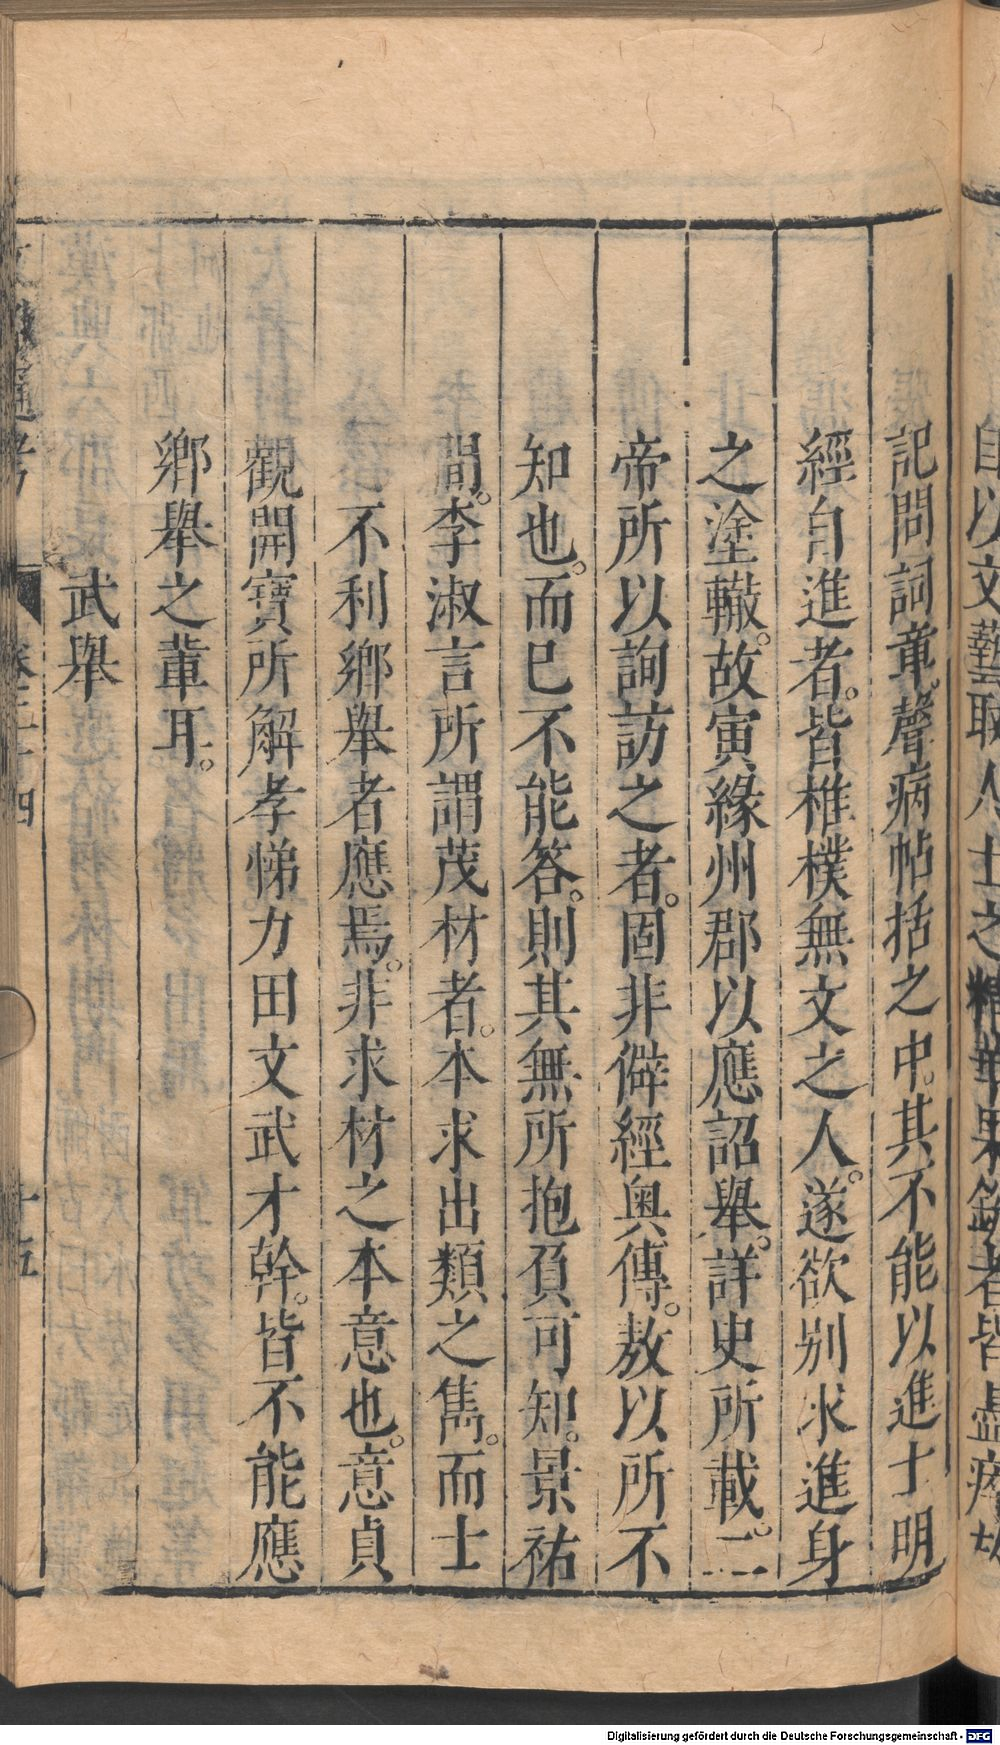 自以文藝取人士之精華果銳者皆盡瘁
記問詞章聲病帖括之中其不能以進士明
經自進者皆椎樸無文之人遂欲別求進身
之塗轍故寅緣州郡以應詔舉詳史所載二
帝所以詢訪之者固非僻經奧傳敖以所不
知也而已不能答則其無所抱負可知景祐
間李淑言所謂茂材者本求出類之雋而士
不利鄉舉者應焉非求材之本意也意貞
觀開寶所解孝悌力田文武才幹皆不能應
鄉舉之輩耳
武舉
文獻通考 卷三十四 十五
Digitalisierung gefördert durch die Deutsche Forschungsgemeinschaft - DFG